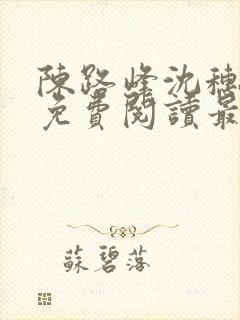 陳路峰沈穗
免費閱讀最
蘇碧落